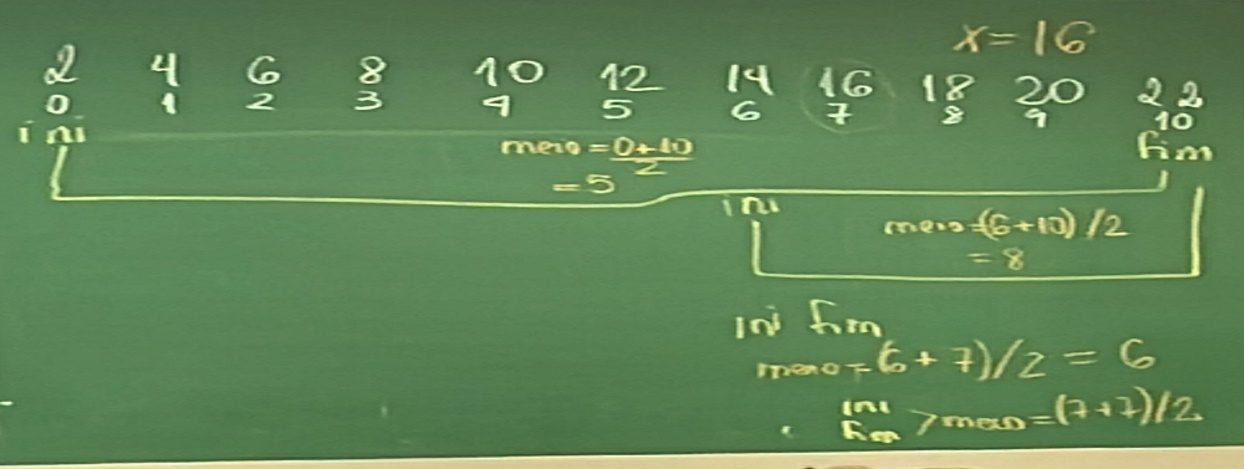 x=16
2 4 6 8 10 12 14 16 18 20 22
0 1 2 3 4 5 6 7 8 9 10
ini fim
meio = 0+10
2
= 5
ini
meio=(6+10)/2
= 8
ini fim
meio=(6+7)/2 = 6
ini
fim >meio=(7+7)/2